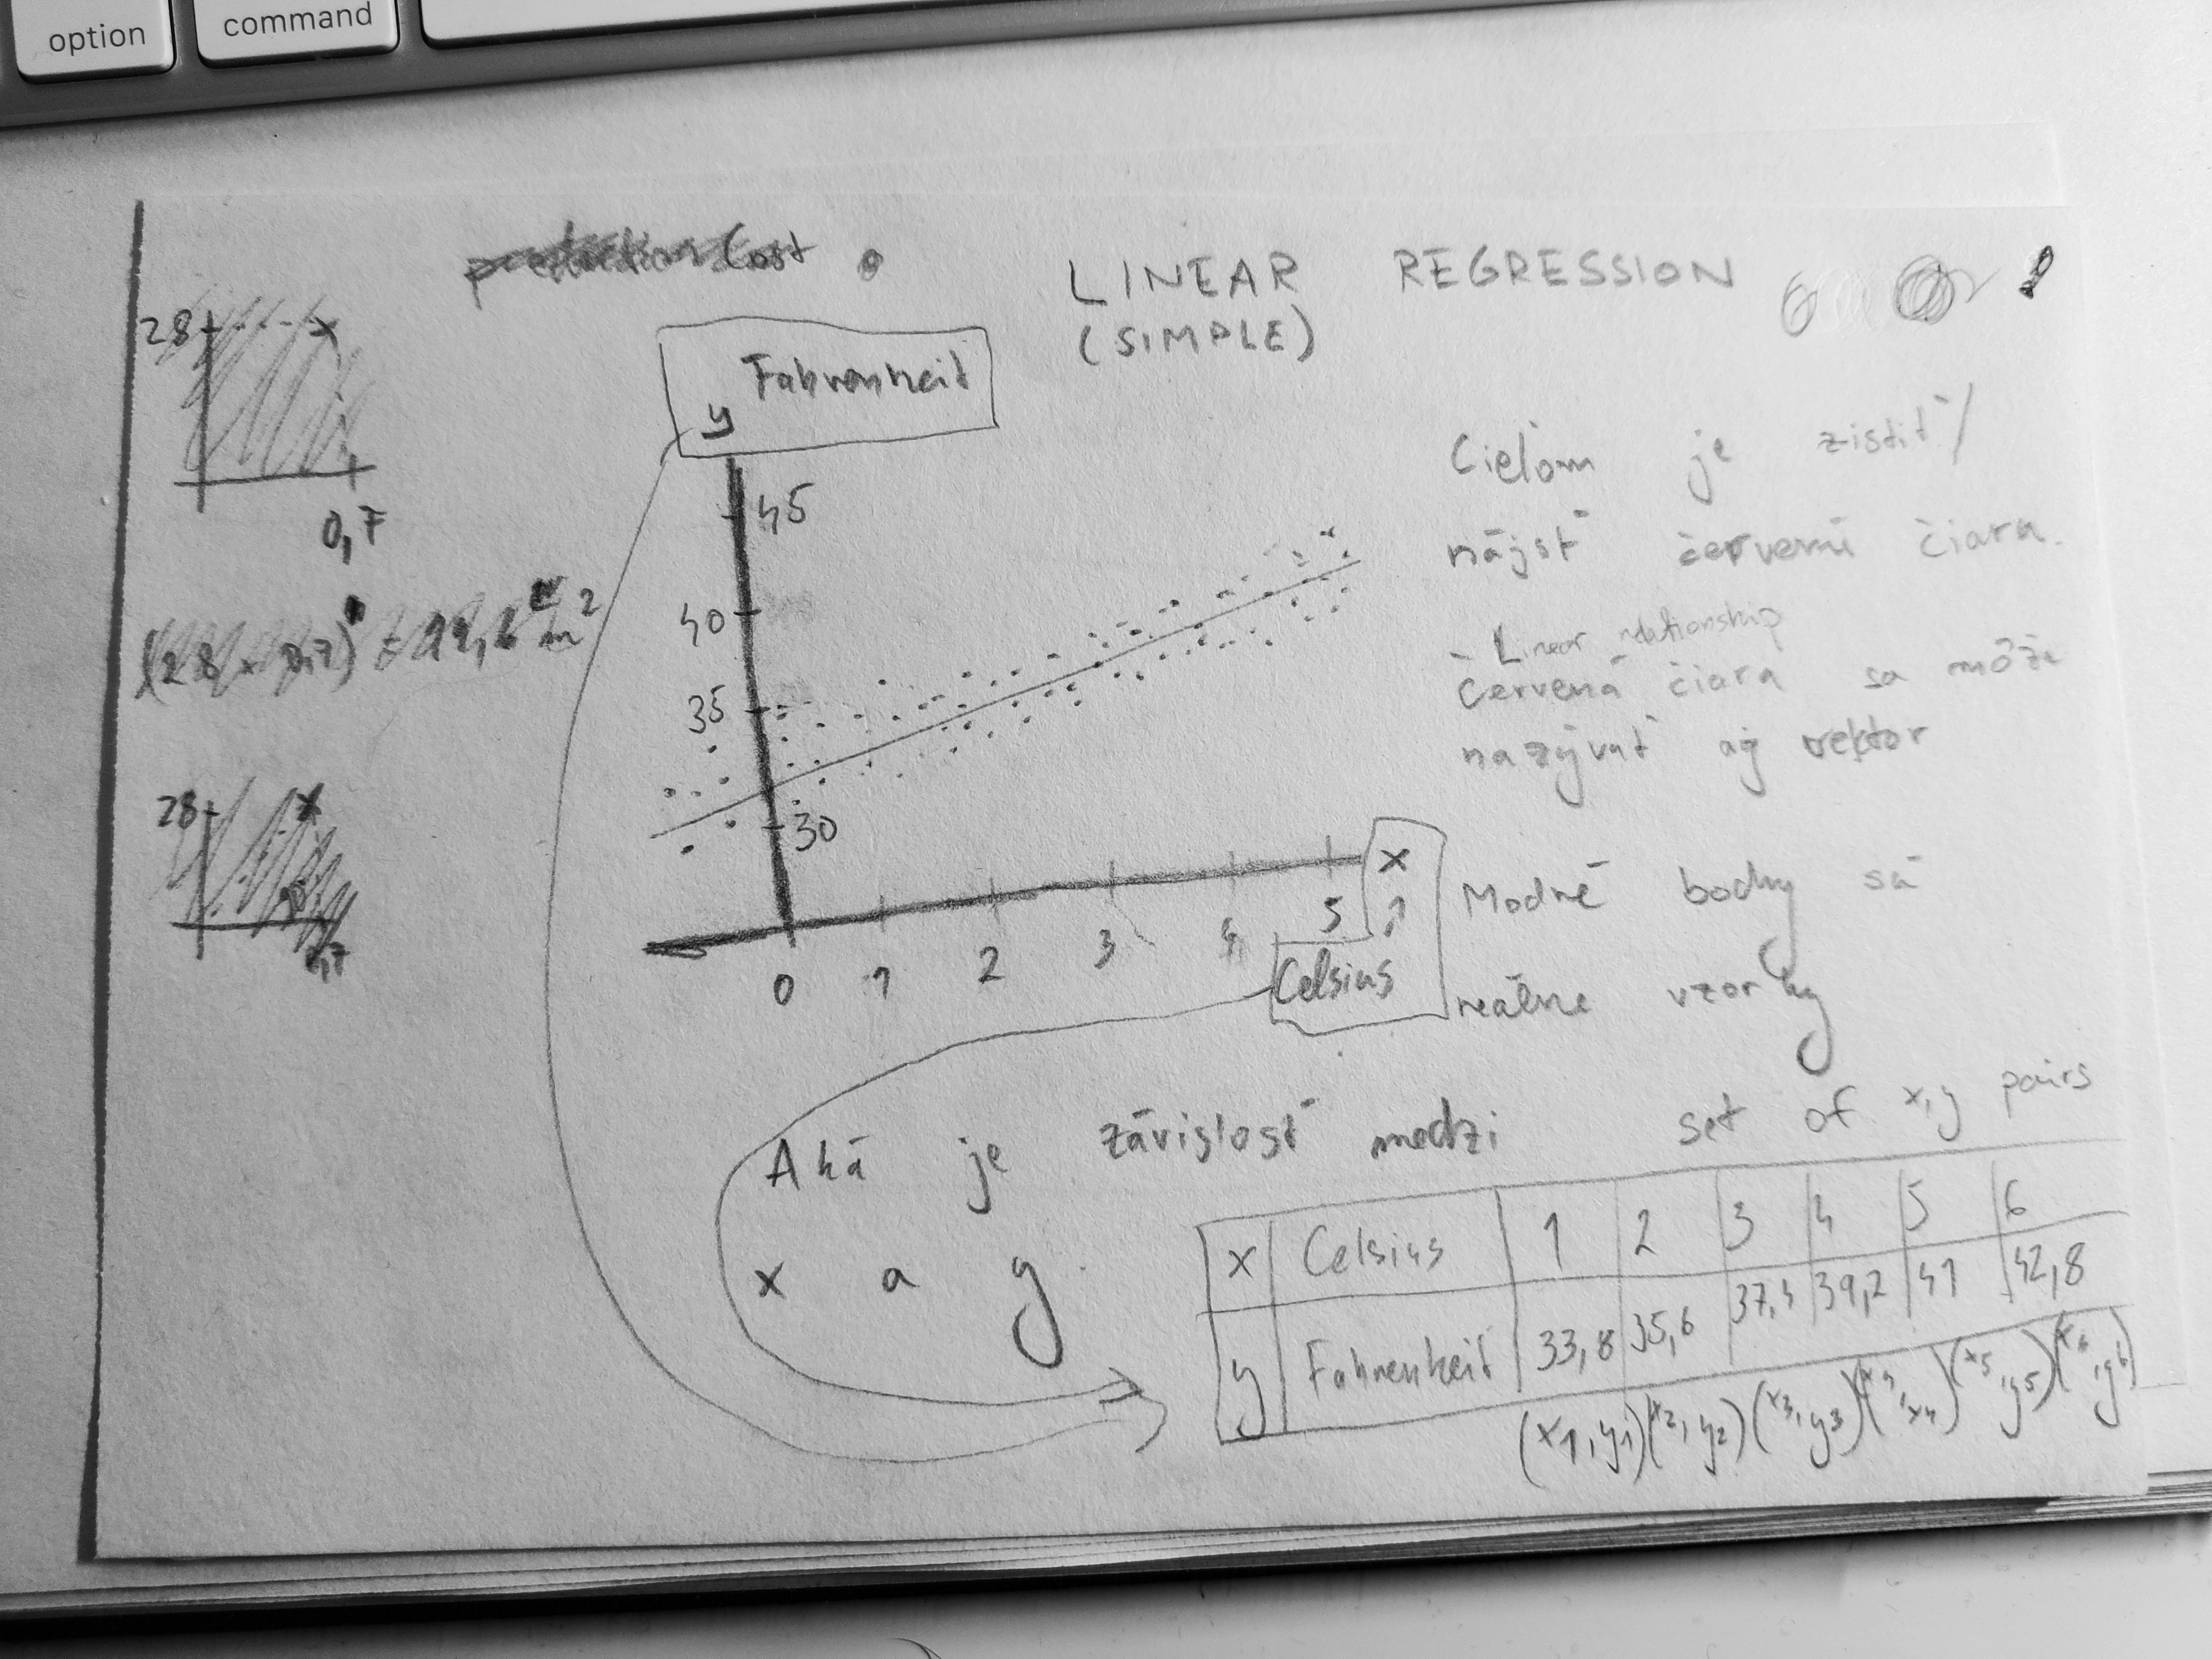 option
command
Cost
LINEAR REGRESSION
(SIMPLE)
28
0,7
Fahrenheit
y
45
40
35
30
x
0 1 2 3 4 5
Celsius
28
Cieľom je zistiť/
nájsť čiara.
- Linear relationship
červená čiara sa môže
nazývať aj vektor
Modré body sú
reálne vzorky
Aká je závislosť medzi
x a y
set of x,y pairs
x Celsius 1 2 3 4 5 6
y Fahrenheit 33,8 35,6 37,4 39,2 41 42,8
(x1,y1) (x2,y2) (x3,y3) (x4,x4) (x5,y5) (x6,y6)